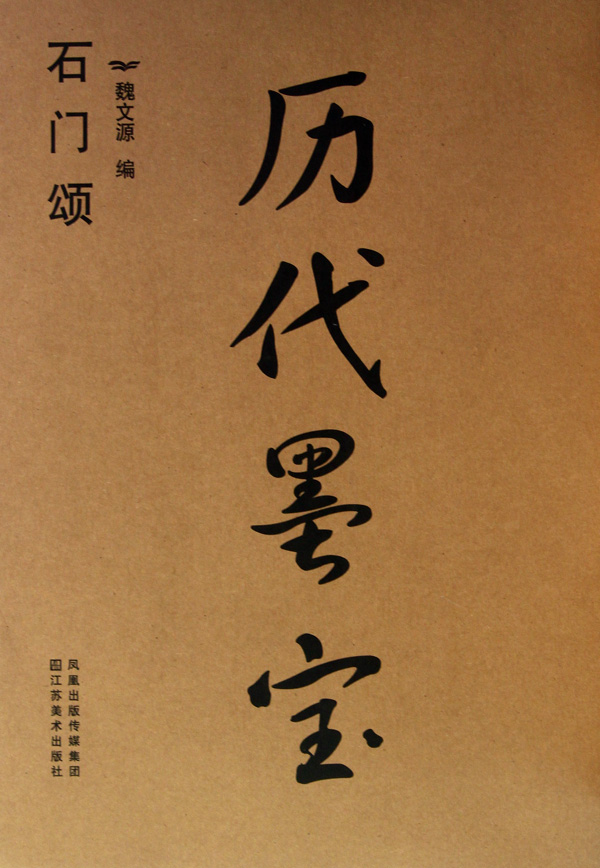 历代墨宝
石门颂
魏文源 编
凤凰出版传媒集团
江苏美术出版社